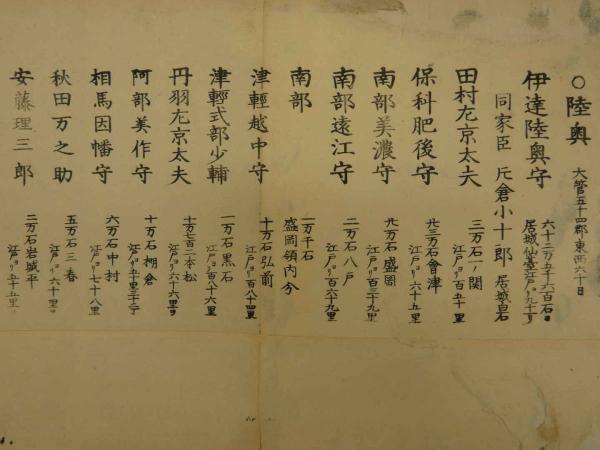 ○陸奥 大管五十四郡東西六十日
伊達陸奥守 六十二万五千六百石
居城仙臺江戸ヨリ九十一リ
同家臣 片倉小十郎 居城白石
田村左京太夫 三万石一ノ関
江戸ヨリ百五十里
保科肥後守 廿三万石會津
江戸ヨリ六十五里
南部美濃守 廿万石盛岡
江戸ヨリ百三十九里
南部遠江守 二万石八戸
江戸ヨリ百六十九里
南部 一万千石
盛岡領内分
津輕越中守 十万石弘前
江戸ヨリ百八十四里
津輕式部少輔 一万石黒石
江戸ヨリ百八十六里
丹羽左京太夫 十万七百石二本松
江戸ヨリ六十六里
阿部美作守 十万石棚倉
江戸ヨリ五十里
相馬因幡守 六万石中村
江戸ヨリ七十八里
秋田万之助 五万石三春
江戸ヨリ六十里
安藤理三郎 三万石岩城平
江戸ヨリ五十五里